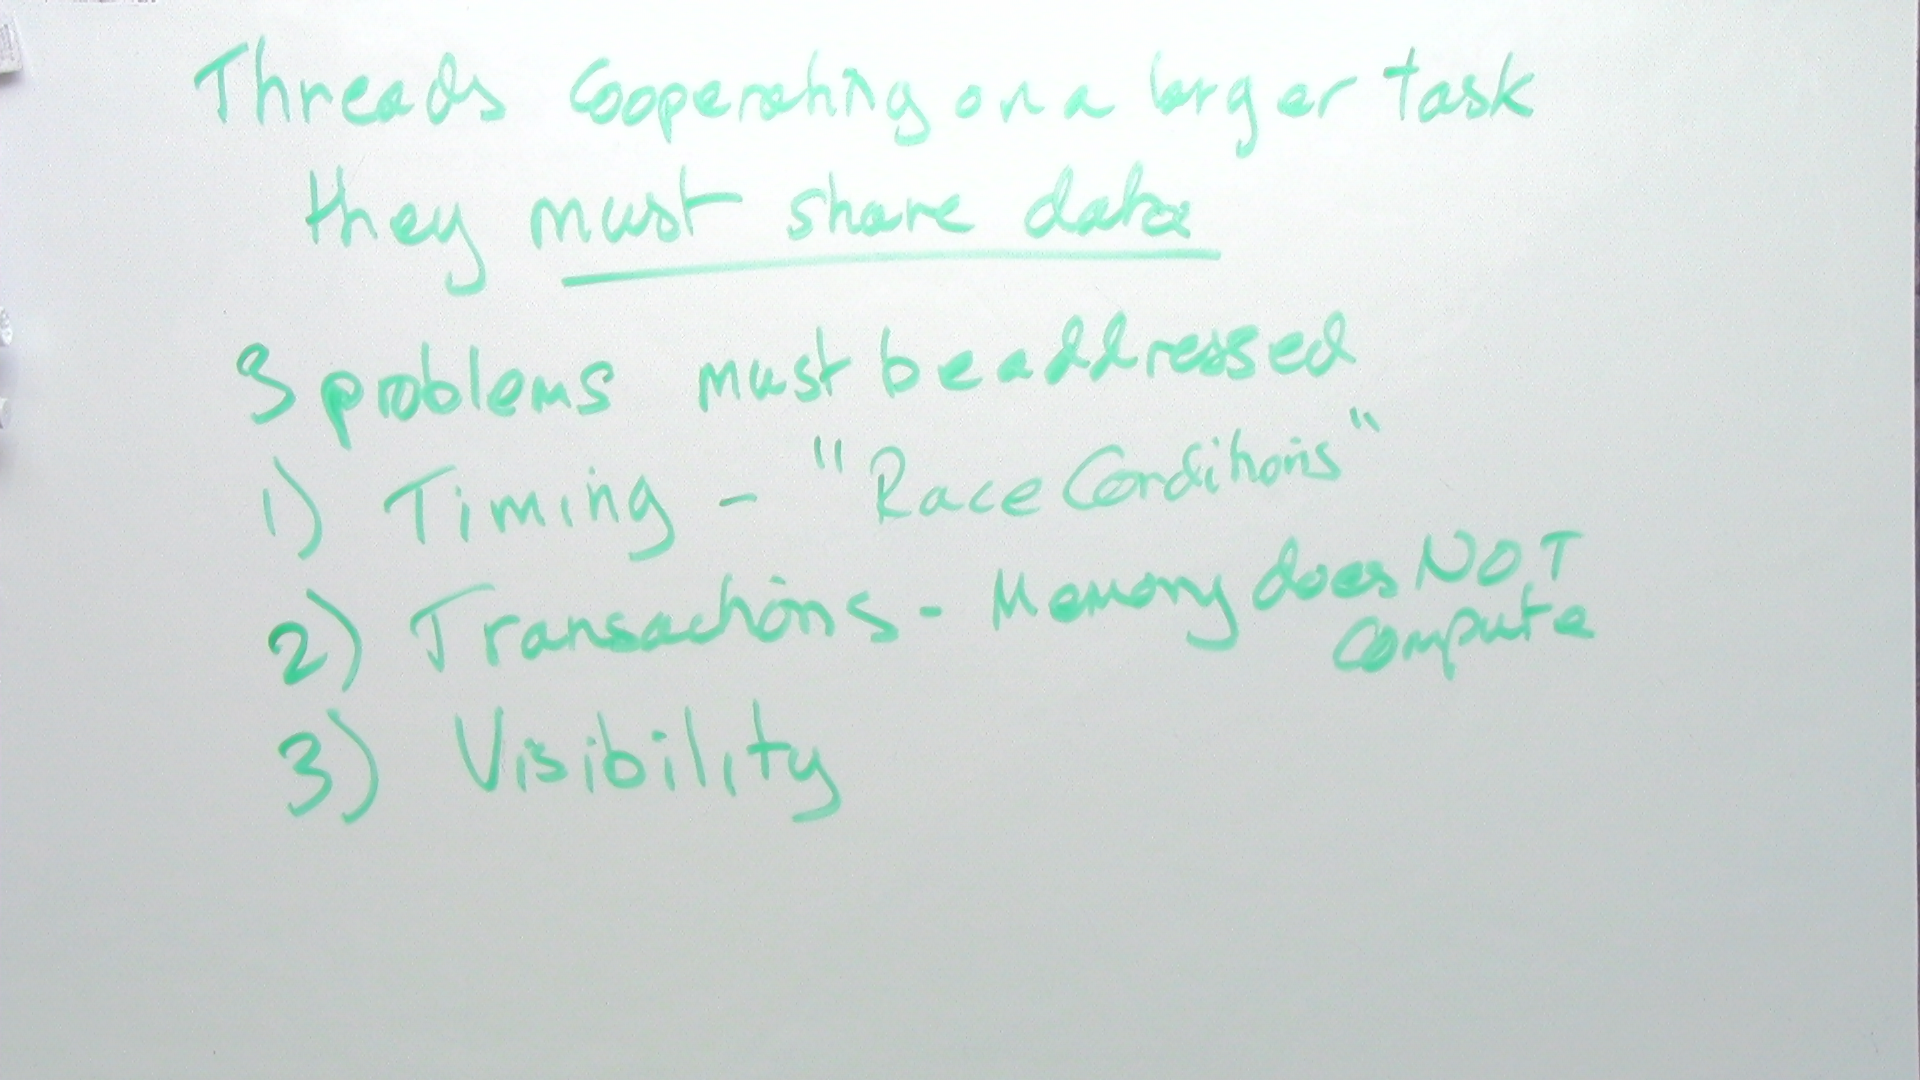 Threads cooperating on a larger task
they must share data
3 problems must be addressed
1) Timing - "Race Conditions"
2) Transactions - Memory does NOT
compute
3) Visibility